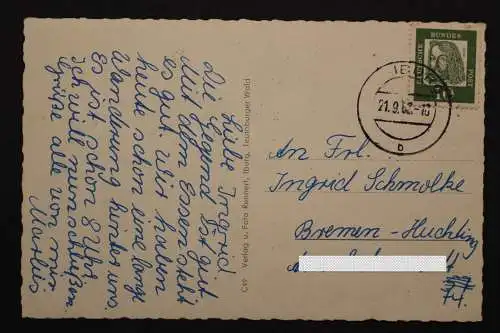 Liebe Ingrid
die Gegend ist gut
Mit dem Essen steht
es gut. Wir haben
heute schon eine lange
Wanderung hinter uns.
Es ist schon 8 Uhr
ich will nun schließen
grüße alle von mir
Cve Verlag u. Foto Rennert, Iburg, Teutoburger Wald
DEUTSCHE BUNDES POST
10
IBURG
21.9.62
b
An Frl.
Ingrid Schmolke
Bremen-Huchting